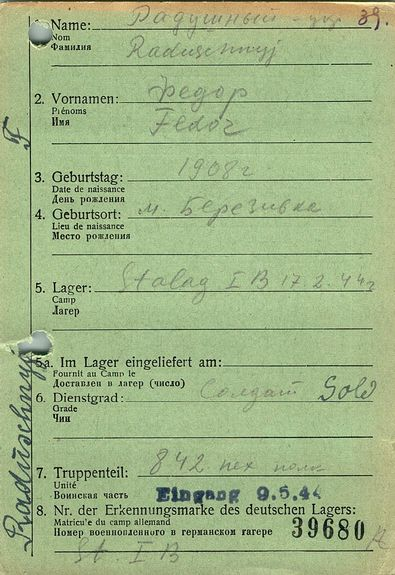 1. Name: Радушный - укр 39.
Nom
Фамилия
Raduschnyj
2. Vornamen: Федор
Prénoms
Имя
Fedor
3. Geburtstag: 1908г
Date de naissance
День рождения
4. Geburtsort: м. Березивка
Lieu de naissance
Место рождения
5. Lager: Stalag I B 17. 2. 44г
Camp
Лагерь
5a. Im Lager eingeliefert am:
Fournit au Camp le
Доставлен в лагер (число)
6. Dienstgrad: Солдат Sold
Grade
Чин
7. Truppenteil: 842 пех полк
Unité
Воинская часть
Eingang 9.5.44
8. Nr. der Erkennungsmarke des deutschen Lagers:
Matricu'e du camp allemand
Номер военнопленного в германском гагере
39680
St. I B
Raduschnyj
F